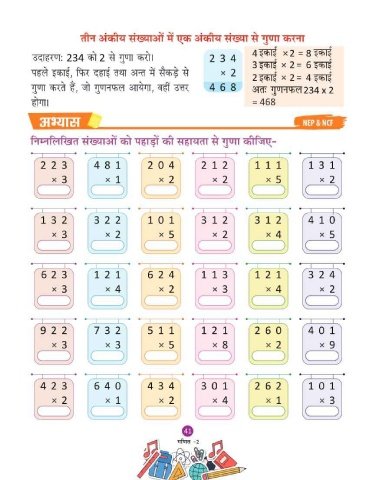 तीन अंकीय संख्याओं में एक अंकीय संख्या से गुणा करना
उदाहरण: 234 को 2 से गुणा करो।
पहले इकाई, फिर दहाई तथा अन्त में सैकड़े से
गुणा करते हैं, जो गुणनफल आयेगा, वहीं उत्तर
होगा।
2 3 4
× 2
4 6 8
4 इकाई × 2 = 8 इकाई
3 इकाई × 2 = 6 इकाई
2 इकाई × 2 = 4 इकाई
अतः गुणनफल 234 x 2
= 468
अभ्यास
NEP & NCF
निम्नलिखित संख्याओं को पहाड़ों की सहायता से गुणा कीजिए-
2 2 3 4 8 1 2 0 4 2 1 2 1 1 1 1 3 1
× 3 × 1 × 2 × 2 × 5 × 2
1 3 2 3 2 2 1 0 1 3 1 2 3 1 2 4 1 0
× 3 × 2 × 5 × 2 × 4 × 5
6 2 3 1 2 1 6 2 4 1 1 3 1 2 1 3 2 4
× 3 × 4 × 2 × 3 × 4 × 2
9 2 2 7 3 2 5 1 1 1 2 1 2 6 0 2 0 1
× 3 × 3 × 5 × 8 × 2 × 9
4 2 3 6 4 0 4 3 4 3 0 1 2 6 2 1 0 1
× 2 × 1 × 2 × 4 × 1 × 3
41
गणित -2